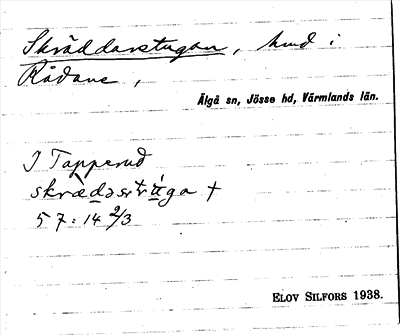 Skräddarstugan, hmd i
Rådane,
Älgå sn, Jösse hd, Värmlands län.
I Tapperud
57: 14 2/3
ELOV SILFORS 1938.